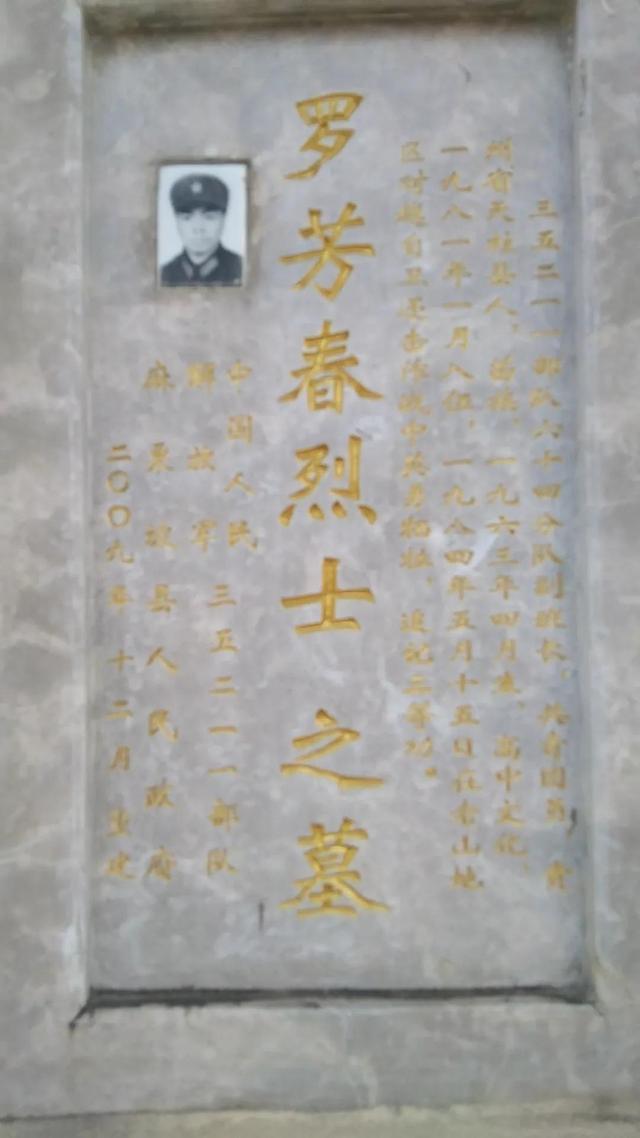 三五二一一部队六十四分队副班长，共青团员，贵
州省天柱县人，苗族，一九六三年四月生，高中文化，
一九八一年一月入伍，一九八四年五月十五日在老山地
区对越自卫还击作战中英勇牺牲，追记三等功。
罗芳春烈士之墓
中国人民
解放军三五二一一部队
麻栗坡县人民政府
二〇〇九年十二月重建